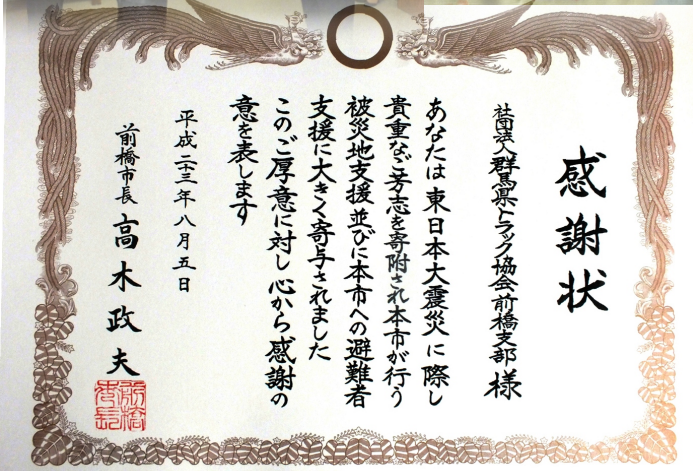 感謝状
社団法人群馬県トラック協会前橋支部様
あなたは東日本大震災に際し
貴重なご芳志を寄附され本市が行う
被災地支援並びに本市への避難者
支援に大きく寄与されました
このご厚意に対し心から感謝の
意を表します
平成二十三年八月五日
前橋市長 高木政夫
前橋市長